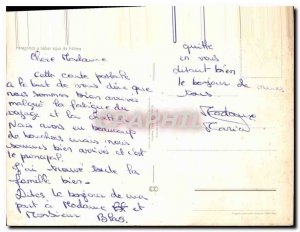 Chère Madame
Cette carte postale
a le but de vous dire que
nous sommes bien arrivés
malgré la fatigue du
voyage et la
Nous avons eu beaucoup
de bouchons mais nous
sommes bien arrivés et c'est
le principal.
J'ai trouvé toute la
famille bien.
Dites le bonjour de ma
part à Madame et
Monsieur Blas.
quitte
en vous
disant bien
le bonjour de
tous
Madame